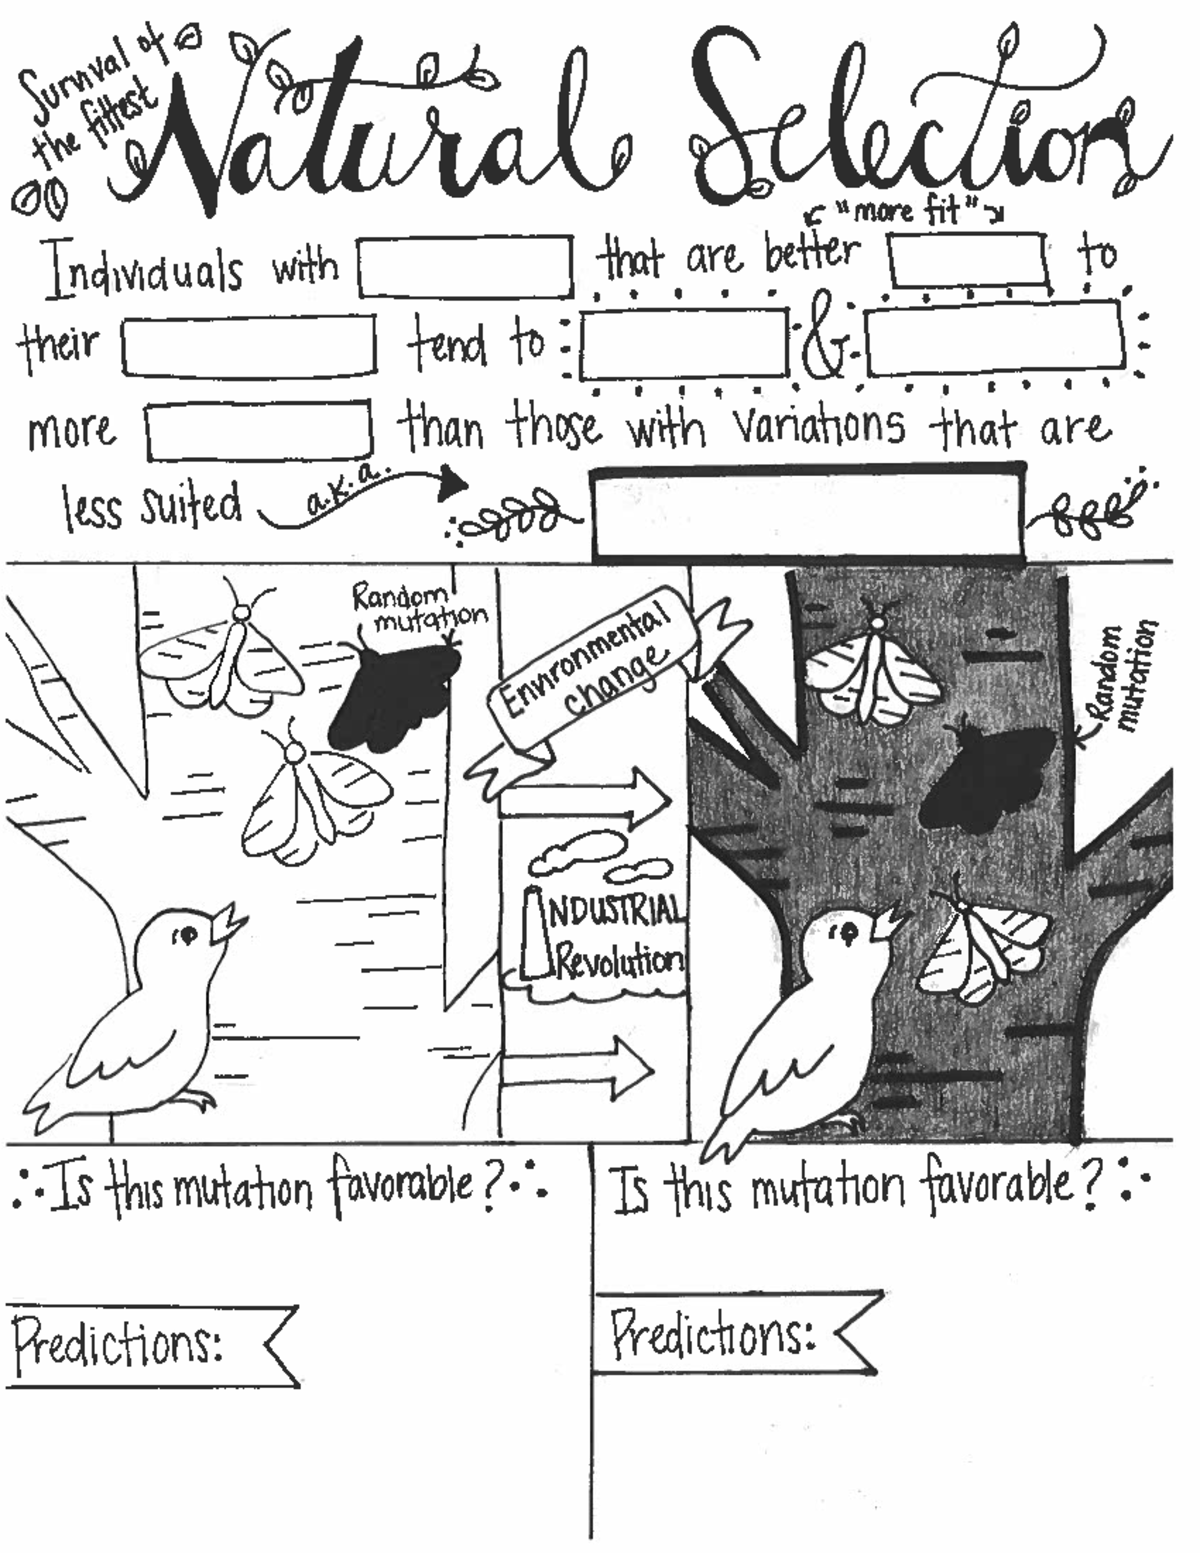 Survival of
the fittest
Natural Selection
"more fit"
Individuals with that are better to
their tend to &
more than those with variations that are
less suited a.k.a.
Random
mutation
Environmental
change
INDUSTRIAL
Revolution
Random
mutation
Is this mutation favorable?
Predictions:
Is this mutation favorable?
Predictions: